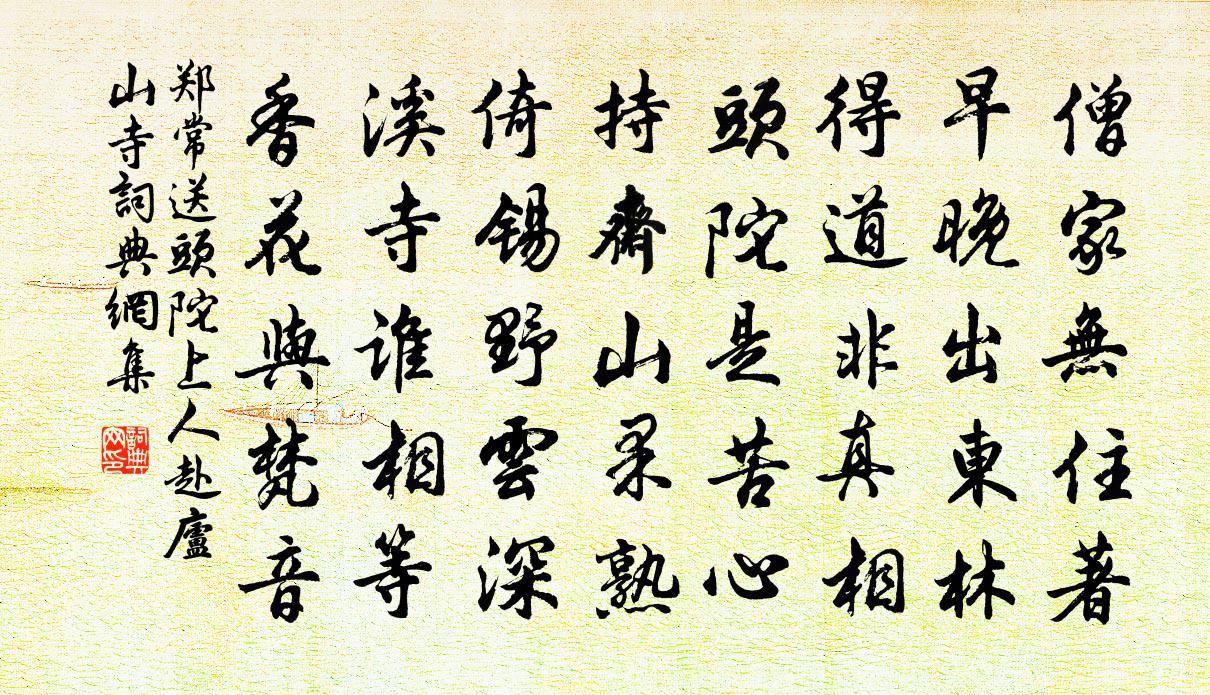 僧家無住著
早晚出東林
得道非真相
頭陀是苦心
持齋山果熟
倚錫野雲深
溪寺誰相等
香花與梵音
郑常送頭陀上人赴廬
山寺詞典網集
詞典
网印